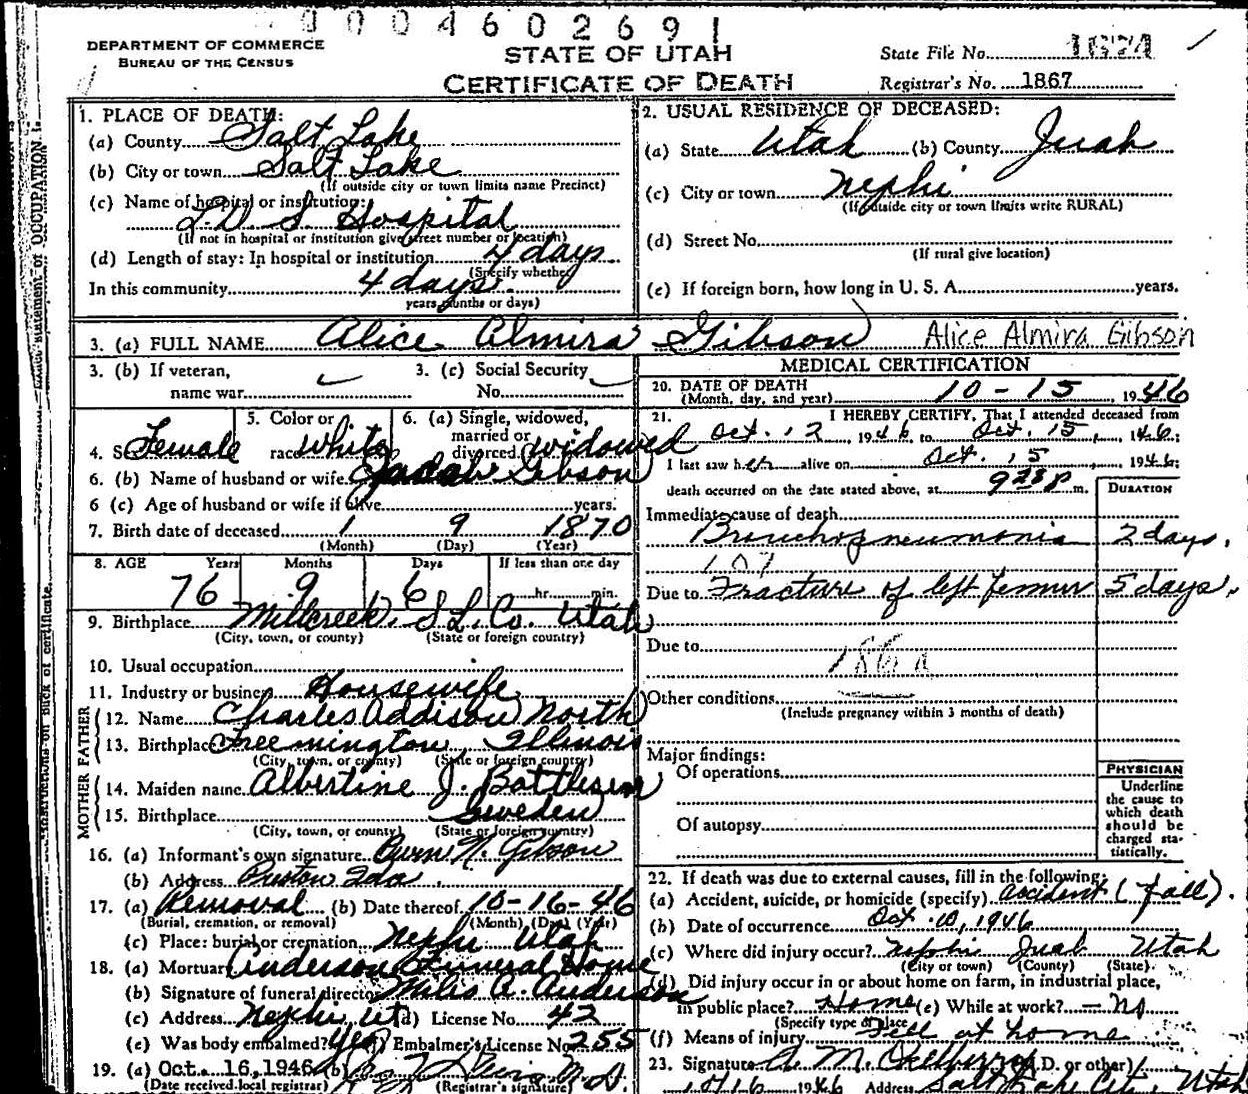 0004602691
DEPARTMENT OF COMMERCE
BUREAU OF THE CENSUS
STATE OF UTAH
CERTIFICATE OF DEATH
State File No.
Registrar's No. 1867
1. PLACE OF DEATH:
(a) County Salt Lake
(b) City or town Salt Lake
(If outside city or town limits name Precinct)
(c) Name of hospital or institution:
L.D.S. Hospital
(If not in hospital or institution give street number or location)
(d) Length of stay: In hospital or institution 4 days
(Specify whether
In this community 4 days.
years, months or days)
2. USUAL RESIDENCE OF DECEASED:
(a) State Utah (b) County Juab
(c) City or town Nephi
(If outside city or town limits write RURAL)
(d) Street No.
(If rural give location)
(e) If foreign born, how long in U. S. A. years.
3. (a) FULL NAME Alice Almira Gibson Alice Almira Gibson
3. (b) If veteran,
name war
3. (c) Social Security
No.
4. Sex Female
5. Color or
race White
6. (a) Single, widowed,
married or
divorced widowed
6. (b) Name of husband or wife Gibson
6 (c) Age of husband or wife if alive years.
7. Birth date of deceased 1 9 1870
(Month) (Day) (Year)
8. AGE Years Months Days If less than one day
76 9 6 hr. min.
9. Birthplace Millcreek, S.L. Co. Utah
(City, town, or county) (State or foreign country)
10. Usual occupation
11. Industry or business Housewife
FATHER
12. Name Charles Addison North
13. Birthplace Illinois
(City, town, or county) (State or foreign country)
MOTHER
14. Maiden name Albertine J.
15. Birthplace Sweden
(City, town, or county) (State or foreign country)
16. (a) Informant's own signature N. Gibson
(b) Address Preston Ida.
17. (a) Removal (b) Date thereof 10-16-46
(Burial, cremation, or removal) (Month) (Day) (Year)
(c) Place: burial or cremation Nephi Utah
18. (a) Mortuary Anderson Funeral Home
(b) Signature of funeral director Miles A. Anderson
(c) Address Nephi Ut (d) License No. 42
(e) Was body embalmed? Yes (f) Embalmer's License No. 255
19. (a) Oct. 16, 1946 (b) M.D.
(Date received local registrar) (Registrar's signature)
MEDICAL CERTIFICATION
20. DATE OF DEATH
(Month, day, and year) 10-15, 1946
21. I HEREBY CERTIFY, That I attended deceased from
Oct. 12, 1946, to Oct. 15, 1946;
I last saw her alive on Oct. 15 1946;
death occurred on the date stated above, at 9 28 P m.
DURATION
Immediate cause of death
Bronchopneumonia 2 days.
107
Due to Fracture of left femur 5 days.
Due to
186 a
Other conditions
(Include pregnancy within 3 months of death)
Major findings:
Of operations
Of autopsy
PHYSICIAN
Underline
the cause to
which death
should be
charged sta-
tistically.
22. If death was due to external causes, fill in the following:
(a) Accident, suicide, or homicide (specify) accident (fall).
(b) Date of occurrence Oct. 10, 1946
(c) Where did injury occur? Nephi Juab Utah
(City or town) (County) (State)
(d) Did injury occur in or about home on farm, in industrial place,
in public place? Home (e) While at work? - no
(Specify type of place)
(f) Means of injury Fell at home
23. Signature M. (M.D. or other)
10/16 1946 Address Salt Lake City, Utah